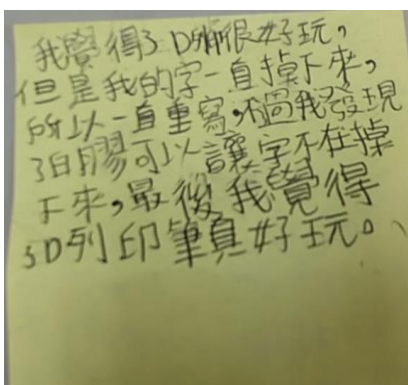 我覺得3D筆很好玩，
但是我的字一直掉下來，
所以一直重寫，不過我發現
了白膠可以讓字不在掉
下來，最後我覺得
3D列印筆真好玩。